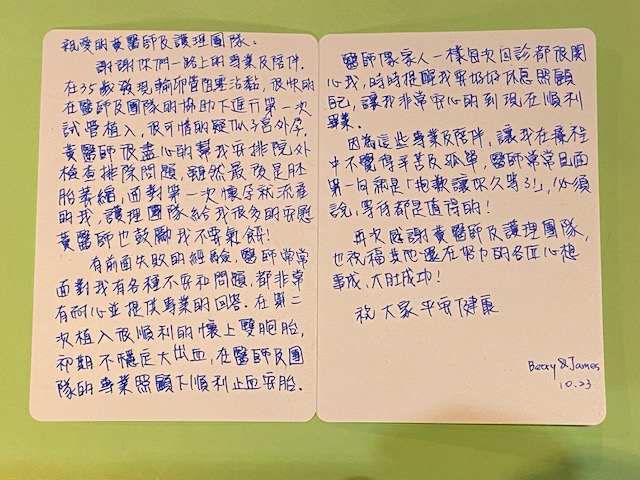 親愛的黃醫師及護理團隊:
謝謝你們一路上的專業及陪伴.
在35歲發現輸卵管阻塞沾黏,很快的
在醫師及團隊的協助下進行第一次
試管植入,很可惜的疑似子宮外孕,
黃醫師很盡心的幫我安排院外
檢查排除問題,雖然最後是胚
胎萎縮,面對第一次懷孕就流產
的我,護理團隊給我很多的安慰
黃醫師也鼓勵我不要氣餒!
有前面失敗的經驗,醫師常常
面對我有各種不安和問題,都非常
有耐心並提供專業的回答.在第二
次植入很順利的懷上雙胞胎,
初期不穩定大出血,在醫師及團
隊的專業照顧下順利止血安胎.
醫師像家人一樣每次回診都很關
心我,時時提醒我要好好休息照顧
自己,讓我非常安心的到現在順利
畢業.
因為這些專業及陪伴,讓我在療程
中不覺得辛苦及孤單,醫師常常見面
第一句就是「抱歉讓你久等了!」,必須
說,等待都是值得的!
再次感謝黃醫師及護理團隊,
也祝福其他還在努力的各位心想
事成,大肚成功!
祝 大家平安健康
Betty & James
10.23